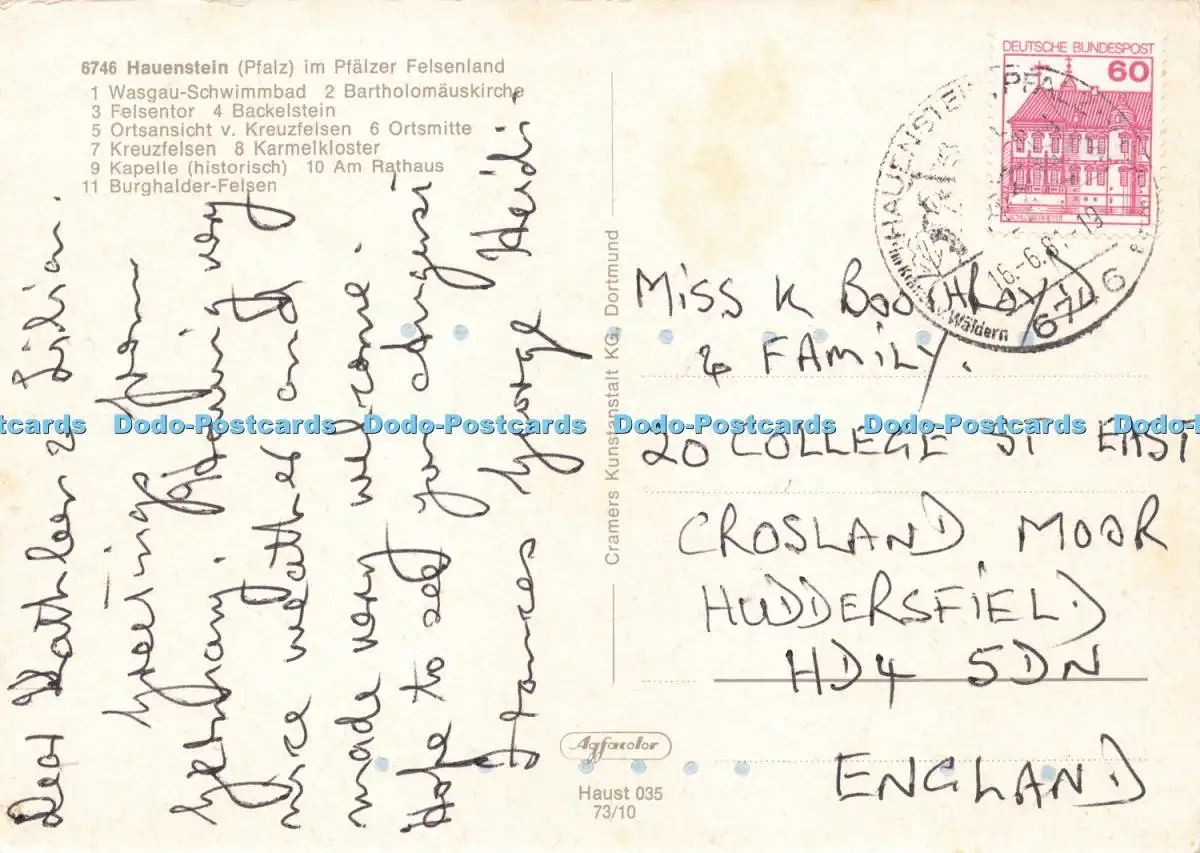 6746 Hauenstein (Pfalz) im Pfälzer Felsenland
1 Wasgau-Schwimmbad 2 Bartholomäuskirche
3 Felsentor 4 Backelstein
5 Ortsansicht v. Kreuzfelsen 6 Ortsmitte
7 Kreuzfelsen 8 Karmelkloster
9 Kapelle (historisch) 10 Am Rathaus
11 Burghalder-Felsen
Dear Kathleen & Lilian.
Greetings from
Germany having very
nice weather and
made very welcome.
Hope to see you August
Frances George Heidi.
Cramers Kunstanstalt KG, Dortmund
DEUTSCHE BUNDESPOST
60
HAUENSTEIN, PFALZ
16.-6.81-19
6746
Wäldern
MISS K BOOTHROYD
& FAMILY.
20 COLLEGE ST EAST
CROSLAND MOOR
HUDDERSFIELD
HD4 5DN
ENGLAND
Agfacolor
Haust 035
73/10
Dodo-Postcards Dodo-Postcards Dodo-Postcards Dodo-Postcards Dodo-Postcards